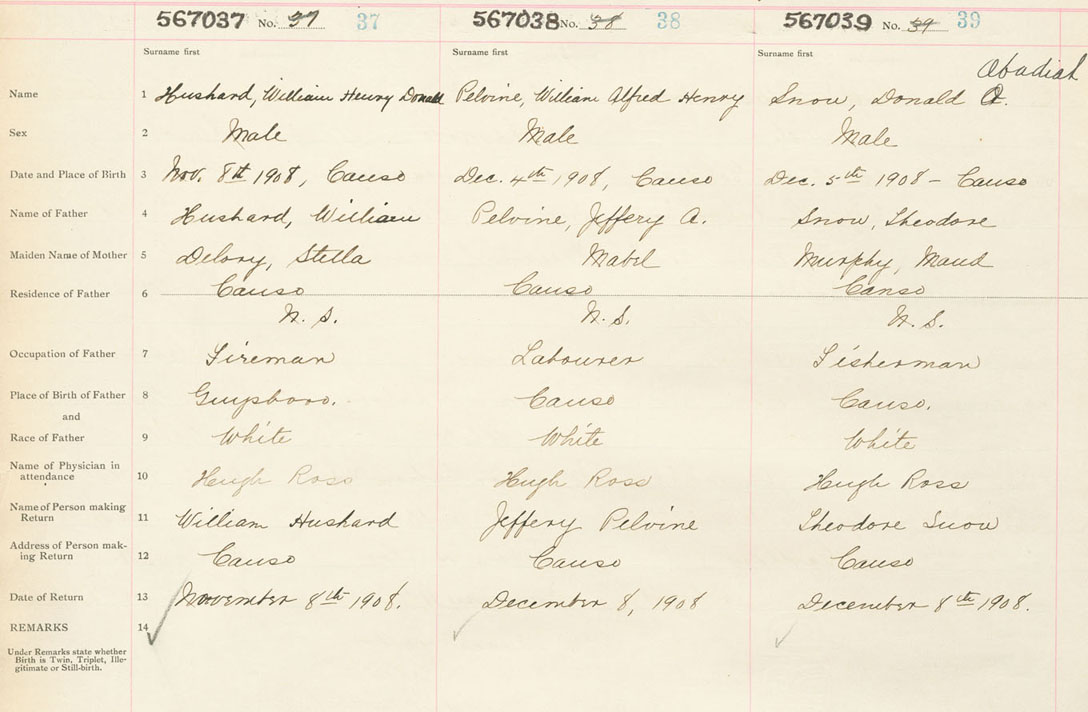 567037 No. 37 37 567038 No. 38 38 567039 No. 39 39
Surname first Surname first Surname first
Obadiah
Name 1 Hushard, William Henry Donald Pelvine, William Alfred Henry Snow, Donald O.
Sex 2 Male Male Male
Date and Place of Birth 3 Nov. 8th 1908, Canso Dec. 4th 1908, Canso Dec. 5th 1908 - Canso
Name of Father 4 Hushard, William Pelvine, Jeffery A. Snow, Theodore
Maiden Name of Mother 5 Delory, Stella Mabel Murphy, Maud
Residence of Father 6 Canso Canso Canso
N. S. N. S. N. S.
Occupation of Father 7 Fireman Labourer Fisherman
Place of Birth of Father 8 Guysboro. Canso Canso.
and
Race of Father 9 White White White
Name of Physician in
attendance 10 Hugh Ross Hugh Ross Hugh Ross
Name of Person making
Return 11 William Hushard Jeffery Pelvine Theodore Snow
Address of Person mak-
ing Return 12 Canso Canso Canso
Date of Return 13 November 8th 1908. December 8, 1908 December 8th 1908.
REMARKS 14
Under Remarks state whether
Birth is Twin, Triplet, Ille-
gitimate or Still-birth.